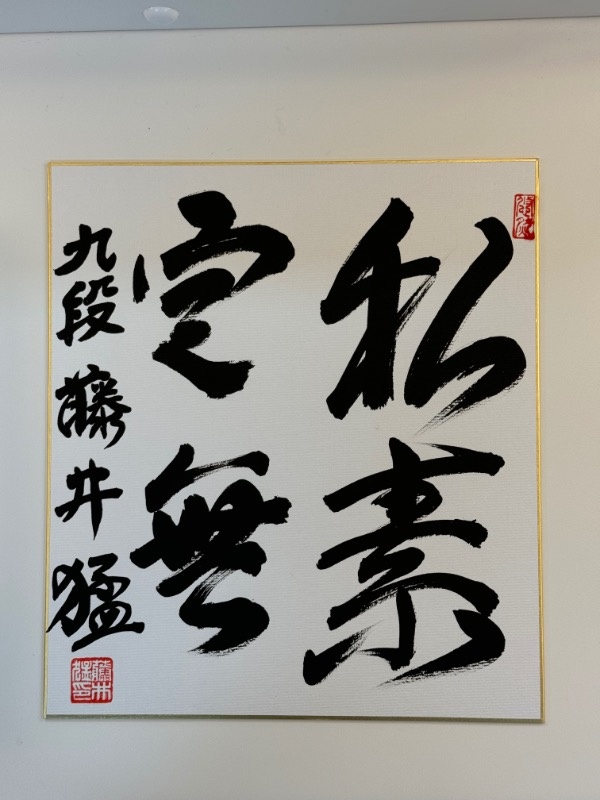 私素
定無
九段 藤井猛
藤井猛印